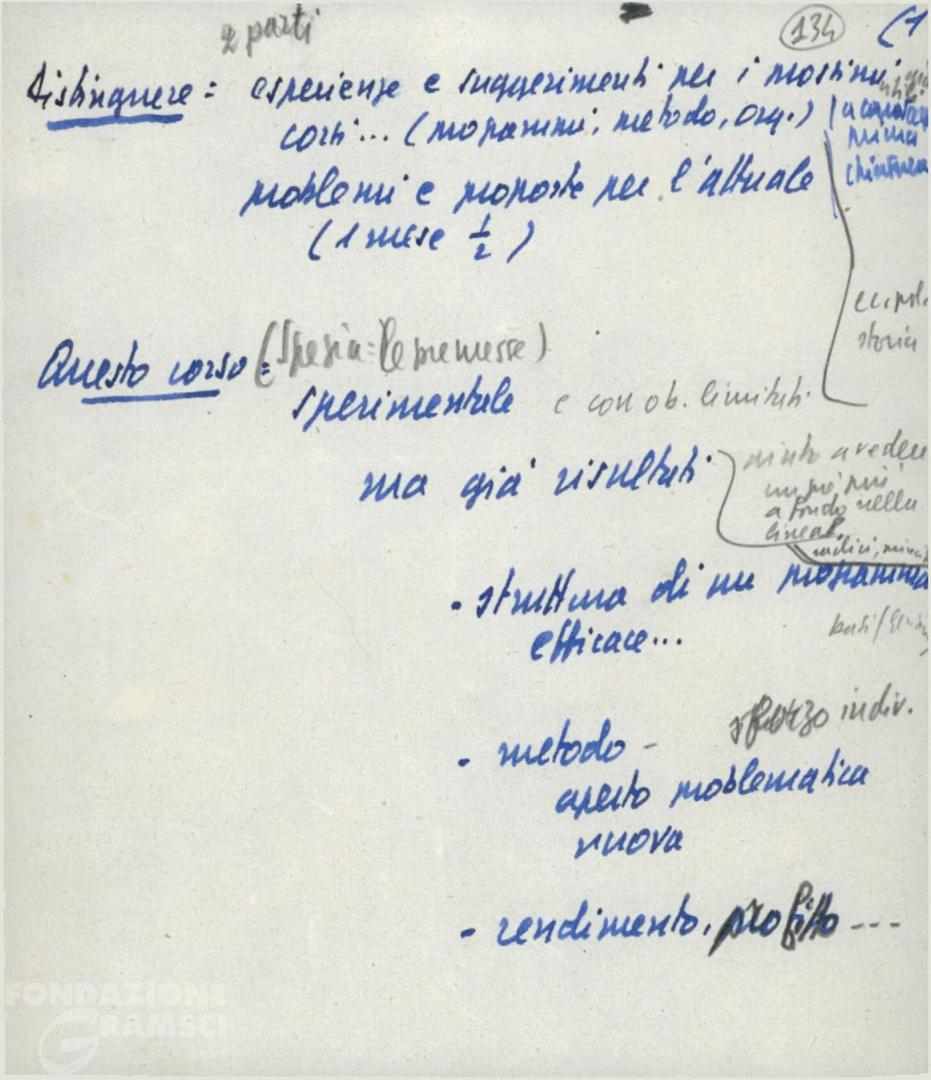 2 parti
134
(1
Distinguere: esperienze e suggerimenti per i prossimi
corsi... (programmi, metodo, org.)
prima
problemi e proposte per l'attuale
(1 mese 1/2)
ec. pol.
storia
Questo corso: (Spesia: le premesse)
sperimentale e con ob. limitati
ma già risultati
a vedere
un po' più
a fondo nella
linea
radici,
- struttura di un programma
efficace...
- metodo - sforzo indiv.
aperto problematica
nuova
- rendimento, profitto ---
FONDAZIONE
GRAMSCI